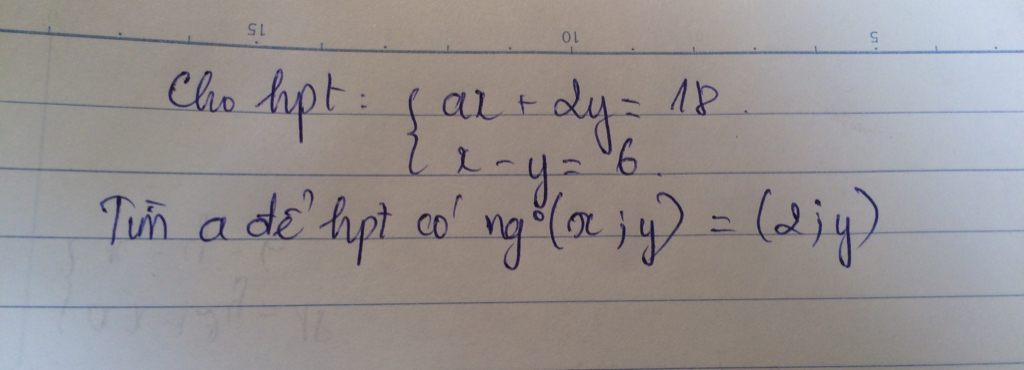 15 10 5
Cho hpt: { ax + 2y = 18.
x - y = 6.
Tìm a để hpt có ng° (x; y) = (2; y)